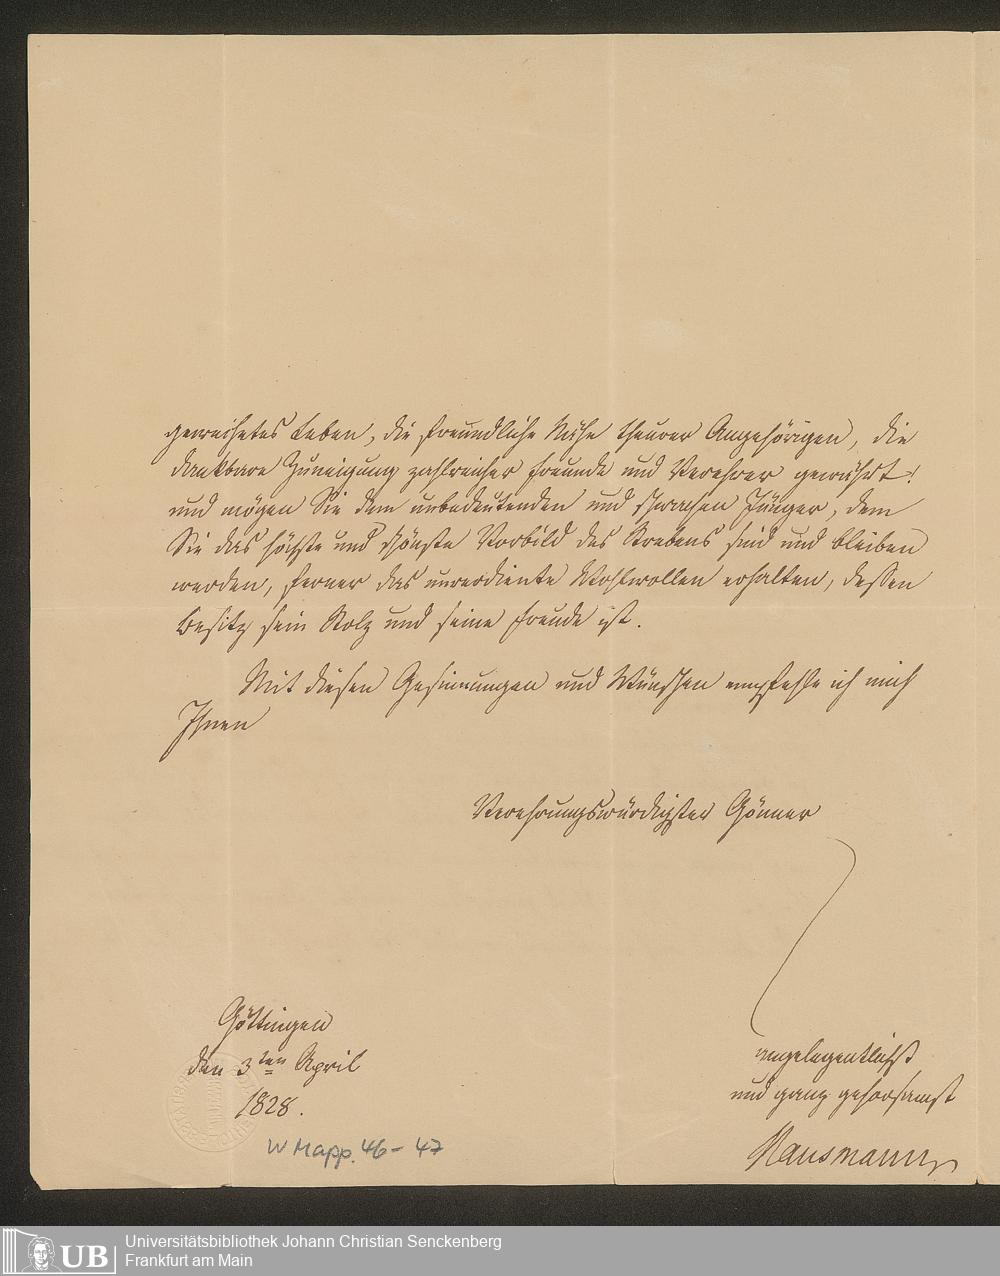 geweihetes Leben, die freundliche Nähe theurer Angehörigen, die
dankbare Zuneigung zahlreicher Freunde und Verehrer gewährt!
und mögen Sie dem unbedeutenden und schwachen Jünger, dem
Sie das höchste und schönste Vorbild des Strebens sind und bleiben
werden, ferner das unverdiente Wohlwollen erhalten, dessen
Besitz sein Stolz und seine Freude ist.
Mit diesen Gesinnungen und Wünschen empfehle ich mich
Ihnen
Verehrungswürdigster Gönner
Göttingen
den 3ten April
1828.
angelegentlichst
und ganz gehorsamst
Hausmann
W Mapp. 46-47
UB
Universitätsbibliothek Johann Christian Senckenberg
Frankfurt am Main